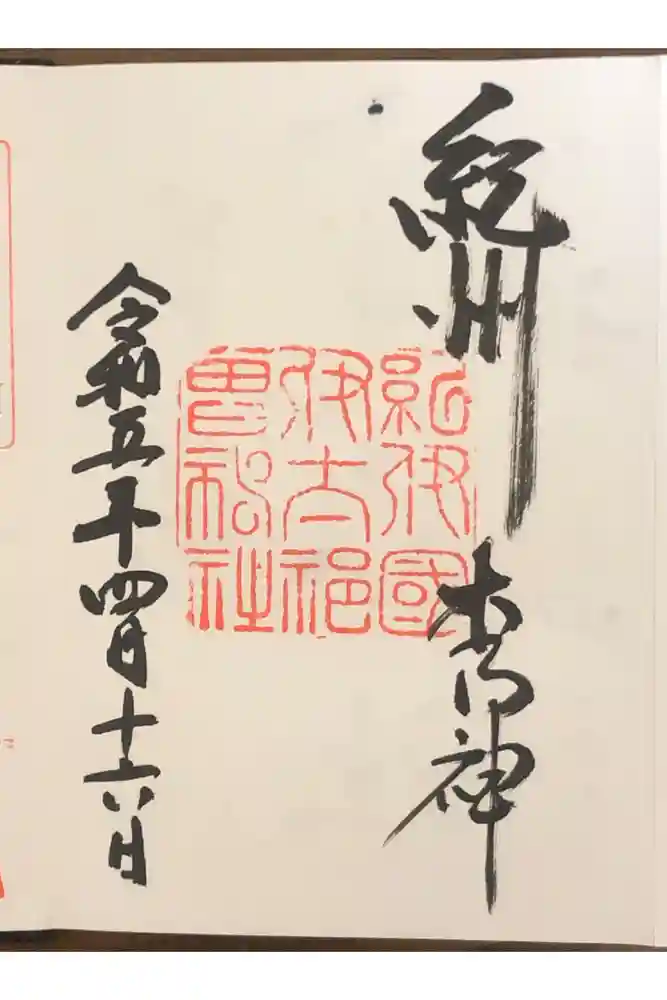 紀州
木の神
紀伊國
伊太祁
曽神社
令和五年四月十六日